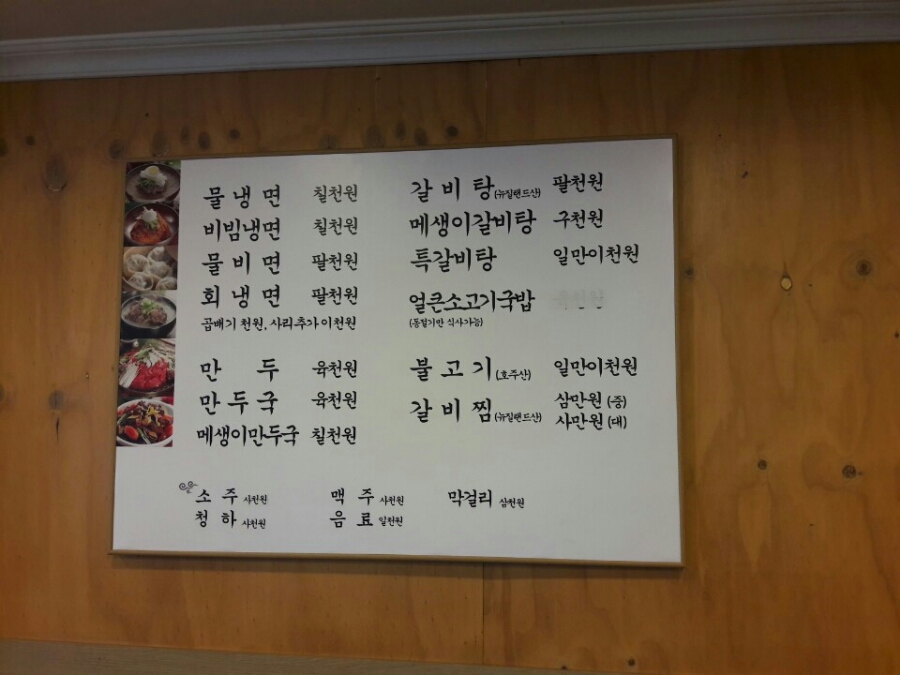 물냉면 칠천원
비빔냉면 칠천원
물비면 팔천원
회냉면 팔천원
곱배기 천원, 사리추가 이천원
만두 육천원
만두국 육천원
메생이만두국 칠천원
갈비탕 (뉴질랜드산) 팔천원
메생이갈비탕 구천원
특갈비탕 일만이천원
얼큰소고기국밥
(동절기만 식사가능)
불고기 (호주산) 일만이천원
갈비찜 (뉴질랜드산) 삼만원 (중)
사만원 (대)
소주 사천원 맥주 사천원 막걸리 삼천원
청하 사천원 음료 일천원